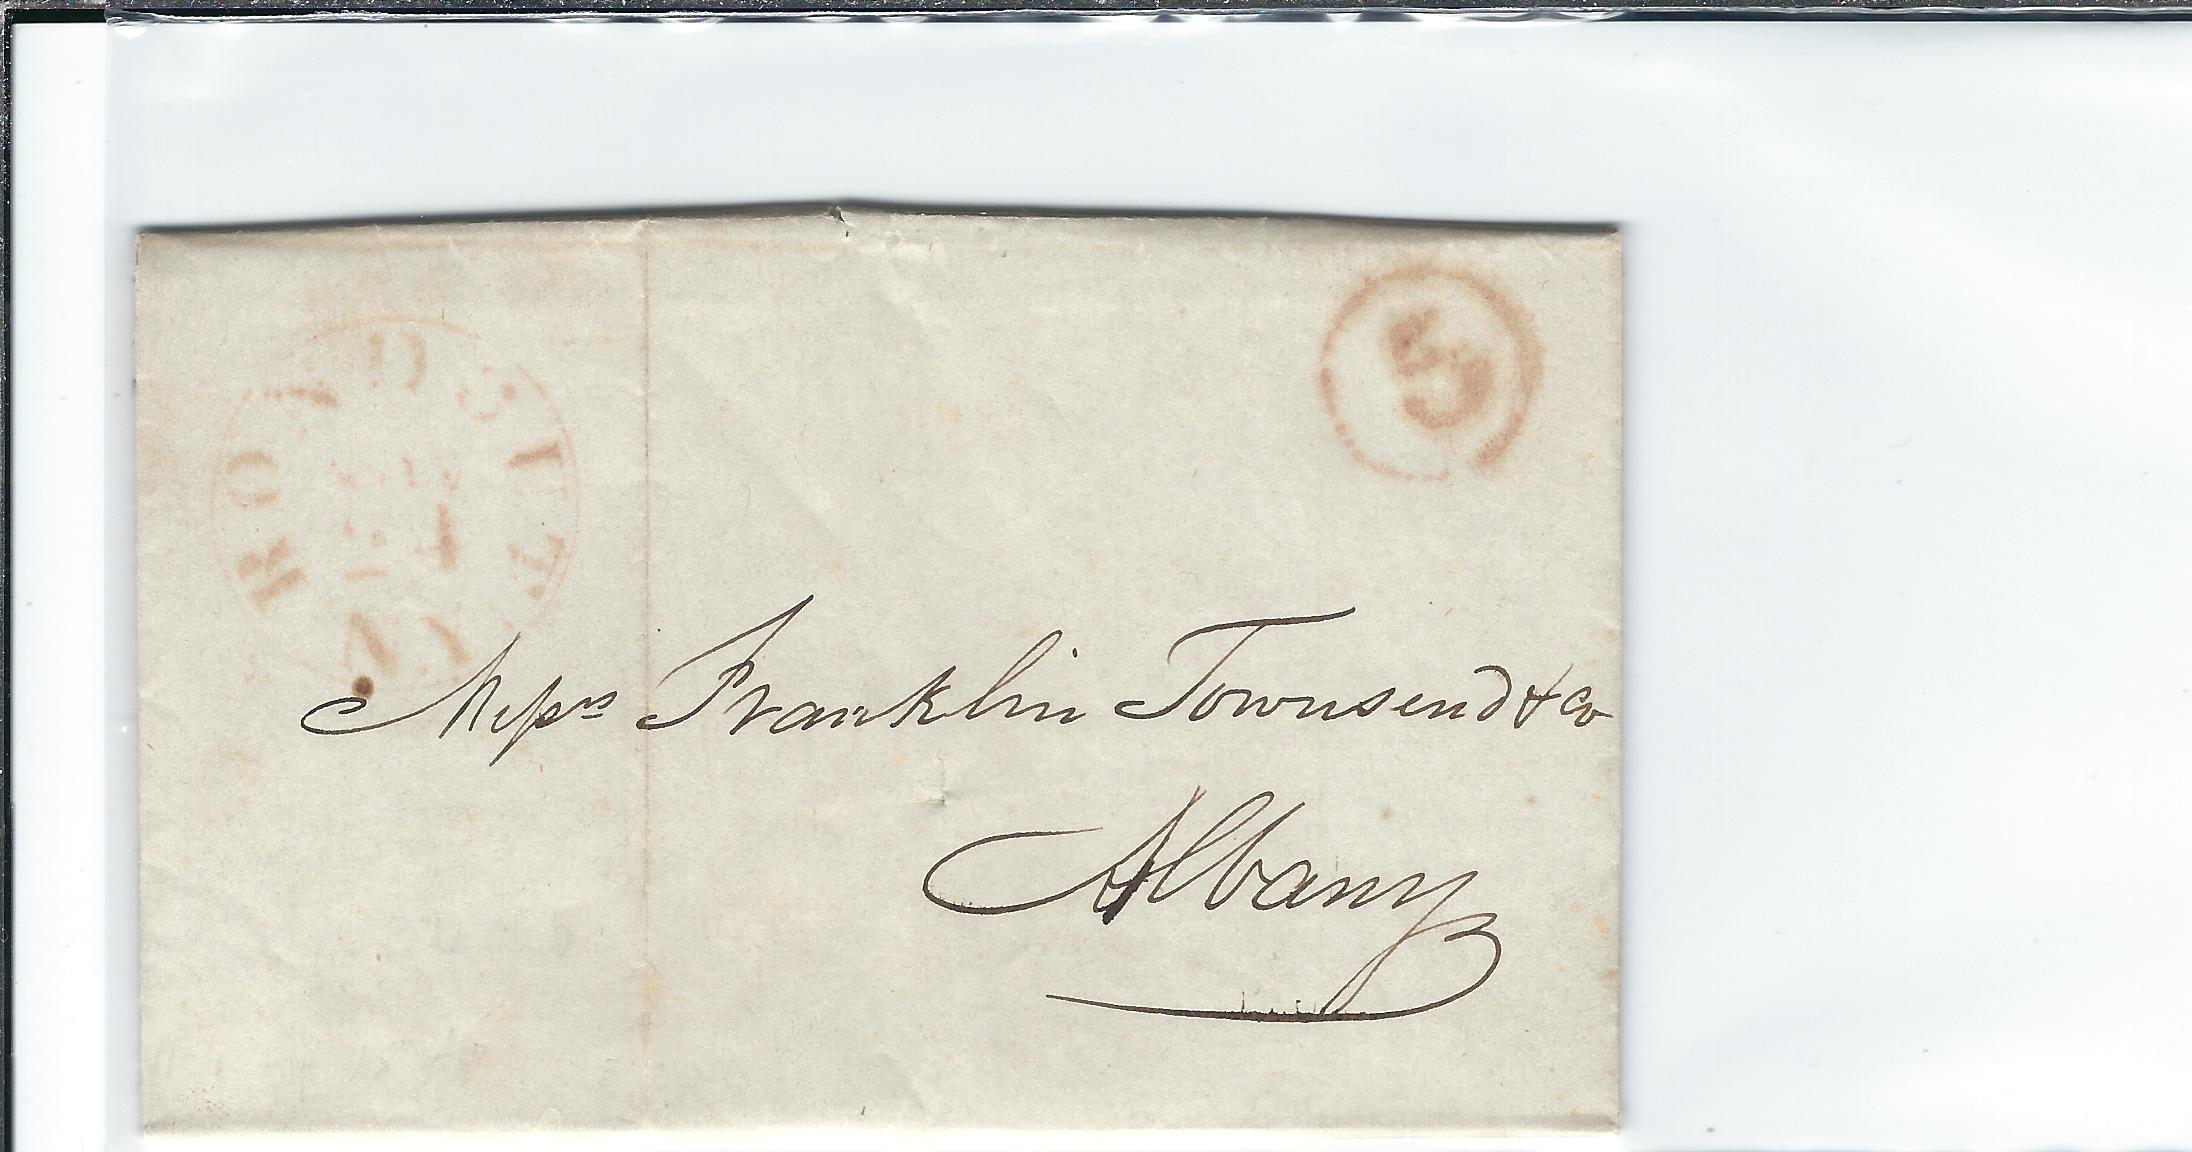 RONDOUT N.Y
5
Messrs Franklin Townsend & Co
Albany